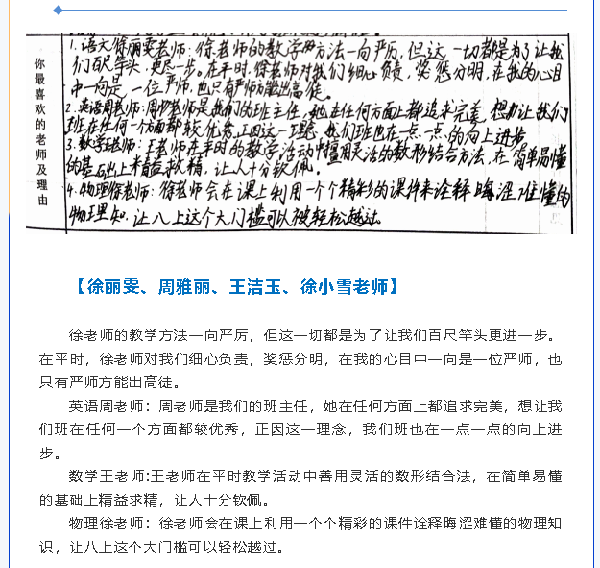 你最喜欢的老师及理由
1.语文徐丽雯老师:徐老师的教学方法一向严厉,但这一切都是为了让我
们百尺竿头,更尽一步。在平时,徐老师对我们细心负责,奖惩分明,在我的心目
中一向是一位严师,也只有严师方能出高徒。
2.英语周老师:周老师是我们的班主任,她在任何方面上都追求完美,想让我们
班在任何一个方面都较优秀,正因这一理念,我们班也在一点一点的向上进步
3.数学王老师:王老师在平时的教学活动中善用灵活的数形结合方法,在简单易懂
的基础上精益求精,让人十分钦佩。
4.物理徐老师:徐老师会在课上利用一个个精彩的课件来诠释晦涩难懂的
物理知识,让八上这个大门槛可以被轻松越过
【徐丽雯、周雅丽、王洁玉、徐小雪老师】
徐老师的教学方法一向严厉,但这一切都是为了让我们百尺竿头更进一步。
在平时,徐老师对我们细心负责,奖惩分明,在我的心目中一向是一位严师,也
只有严师方能出高徒。
英语周老师:周老师是我们的班主任,她在任何方面上都追求完美,想让我
们班在任何一个方面都较优秀,正因这一理念,我们班也在一点一点的向上进
步。
数学王老师:王老师在平时教学活动中善用灵活的数形结合法,在简单易懂
的基础上精益求精,让人十分钦佩。
物理徐老师:徐老师会在课上利用一个个精彩的课件诠释晦涩难懂的物理知
识,让八上这个大门槛可以轻松越过。